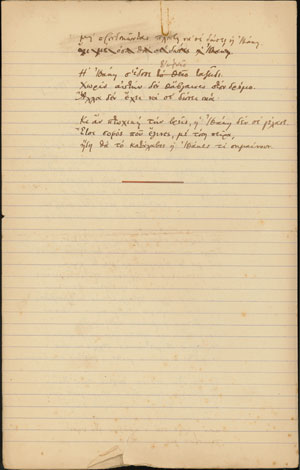 μη προσδοκώντας πλούτη να σε δώση η Ιθάκη
Η Ιθάκη σ' έδωσε το ωραίο ταξείδι.
Χωρίς αυτήν δεν θάβγαινες στον δρόμο.
Άλλα δεν έχει να σε δώσει πιά.
Κι αν πτωχική την βρης, η Ιθάκη δεν σε γέλασε.
Έτσι σοφός που έγινες, με τόση πείρα,
ήδη θα το κατάλαβες η Ιθάκες τι σημαίνουν.